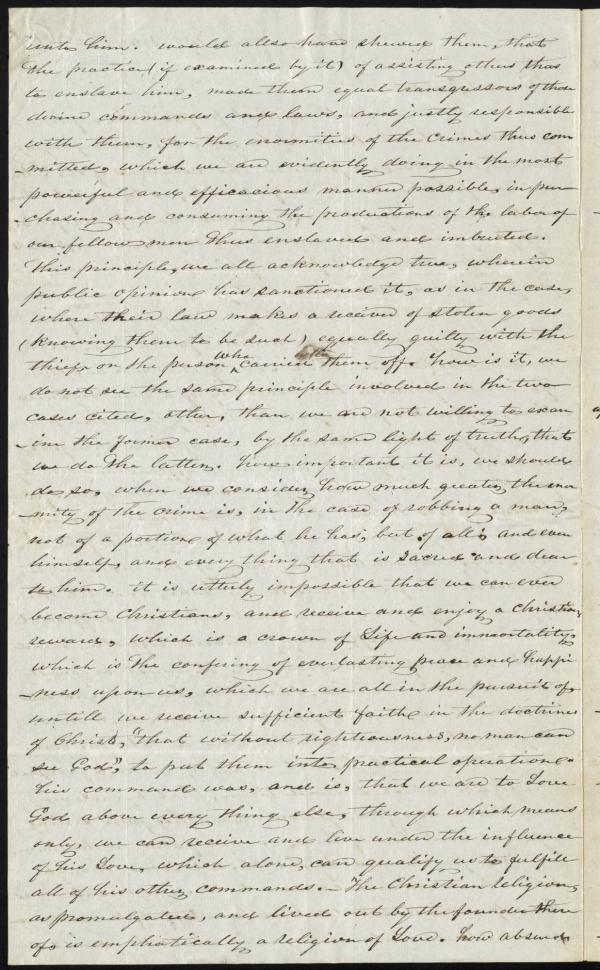 unto him. would allso have shewed them, that
the practice (if examined by it) of assisting others thus
to enslave him, made them equal transgressors of those
divine commands and laws, and justly responsible
with them, for the enormities of the crimes thus com
-mitted, which we are evidently doing in the most
powerful and efficacious manner possible, in pur
-chasing and consuming the productions of the labor of
our fellow man thus enslaved and imbruted.
This principle, we all acknowledge true, wherein
public opinion has sanctioned it, as in the case,
where their law makes a receiver of stolen goods
(knowing them to be such) equally guilty with the
thief, or the person who carried them off. how is it, we
do not see the same principle involved in the two
cases cited, other, than we are not willing to exam
-ine the former case, by the same light of truth, that
we do the latter. how important it is, we should
do so, when we consider, how much greater the enor
-mity of the crime is, in the case of robbing a man,
not of a portion of what he has, but of all, and even
himself, and every thing that is sacred and dear
to him. it is utterly impossible that we can ever
become Christians, and receive and enjoy a Christian
reward, which is a crown of Life and immortality,
which is the confering of everlasting peace and happi
-ness upon us, which we are all in the pursuit of,
untill we receive sufficient faith in the doctrines
of Christ, "that without righteousness, no man can
see God", to put them into practical operation.
his command was, and is, that we are to Love
God above every thing else, through which means
only, we can receive and live under the influence
of his Love, which alone, can qualify us to fulfill
all of his other commands. - The Christian religion,
as promulgated, and lived out by the founder there
of, is emphatically a religion of Love. how absurd